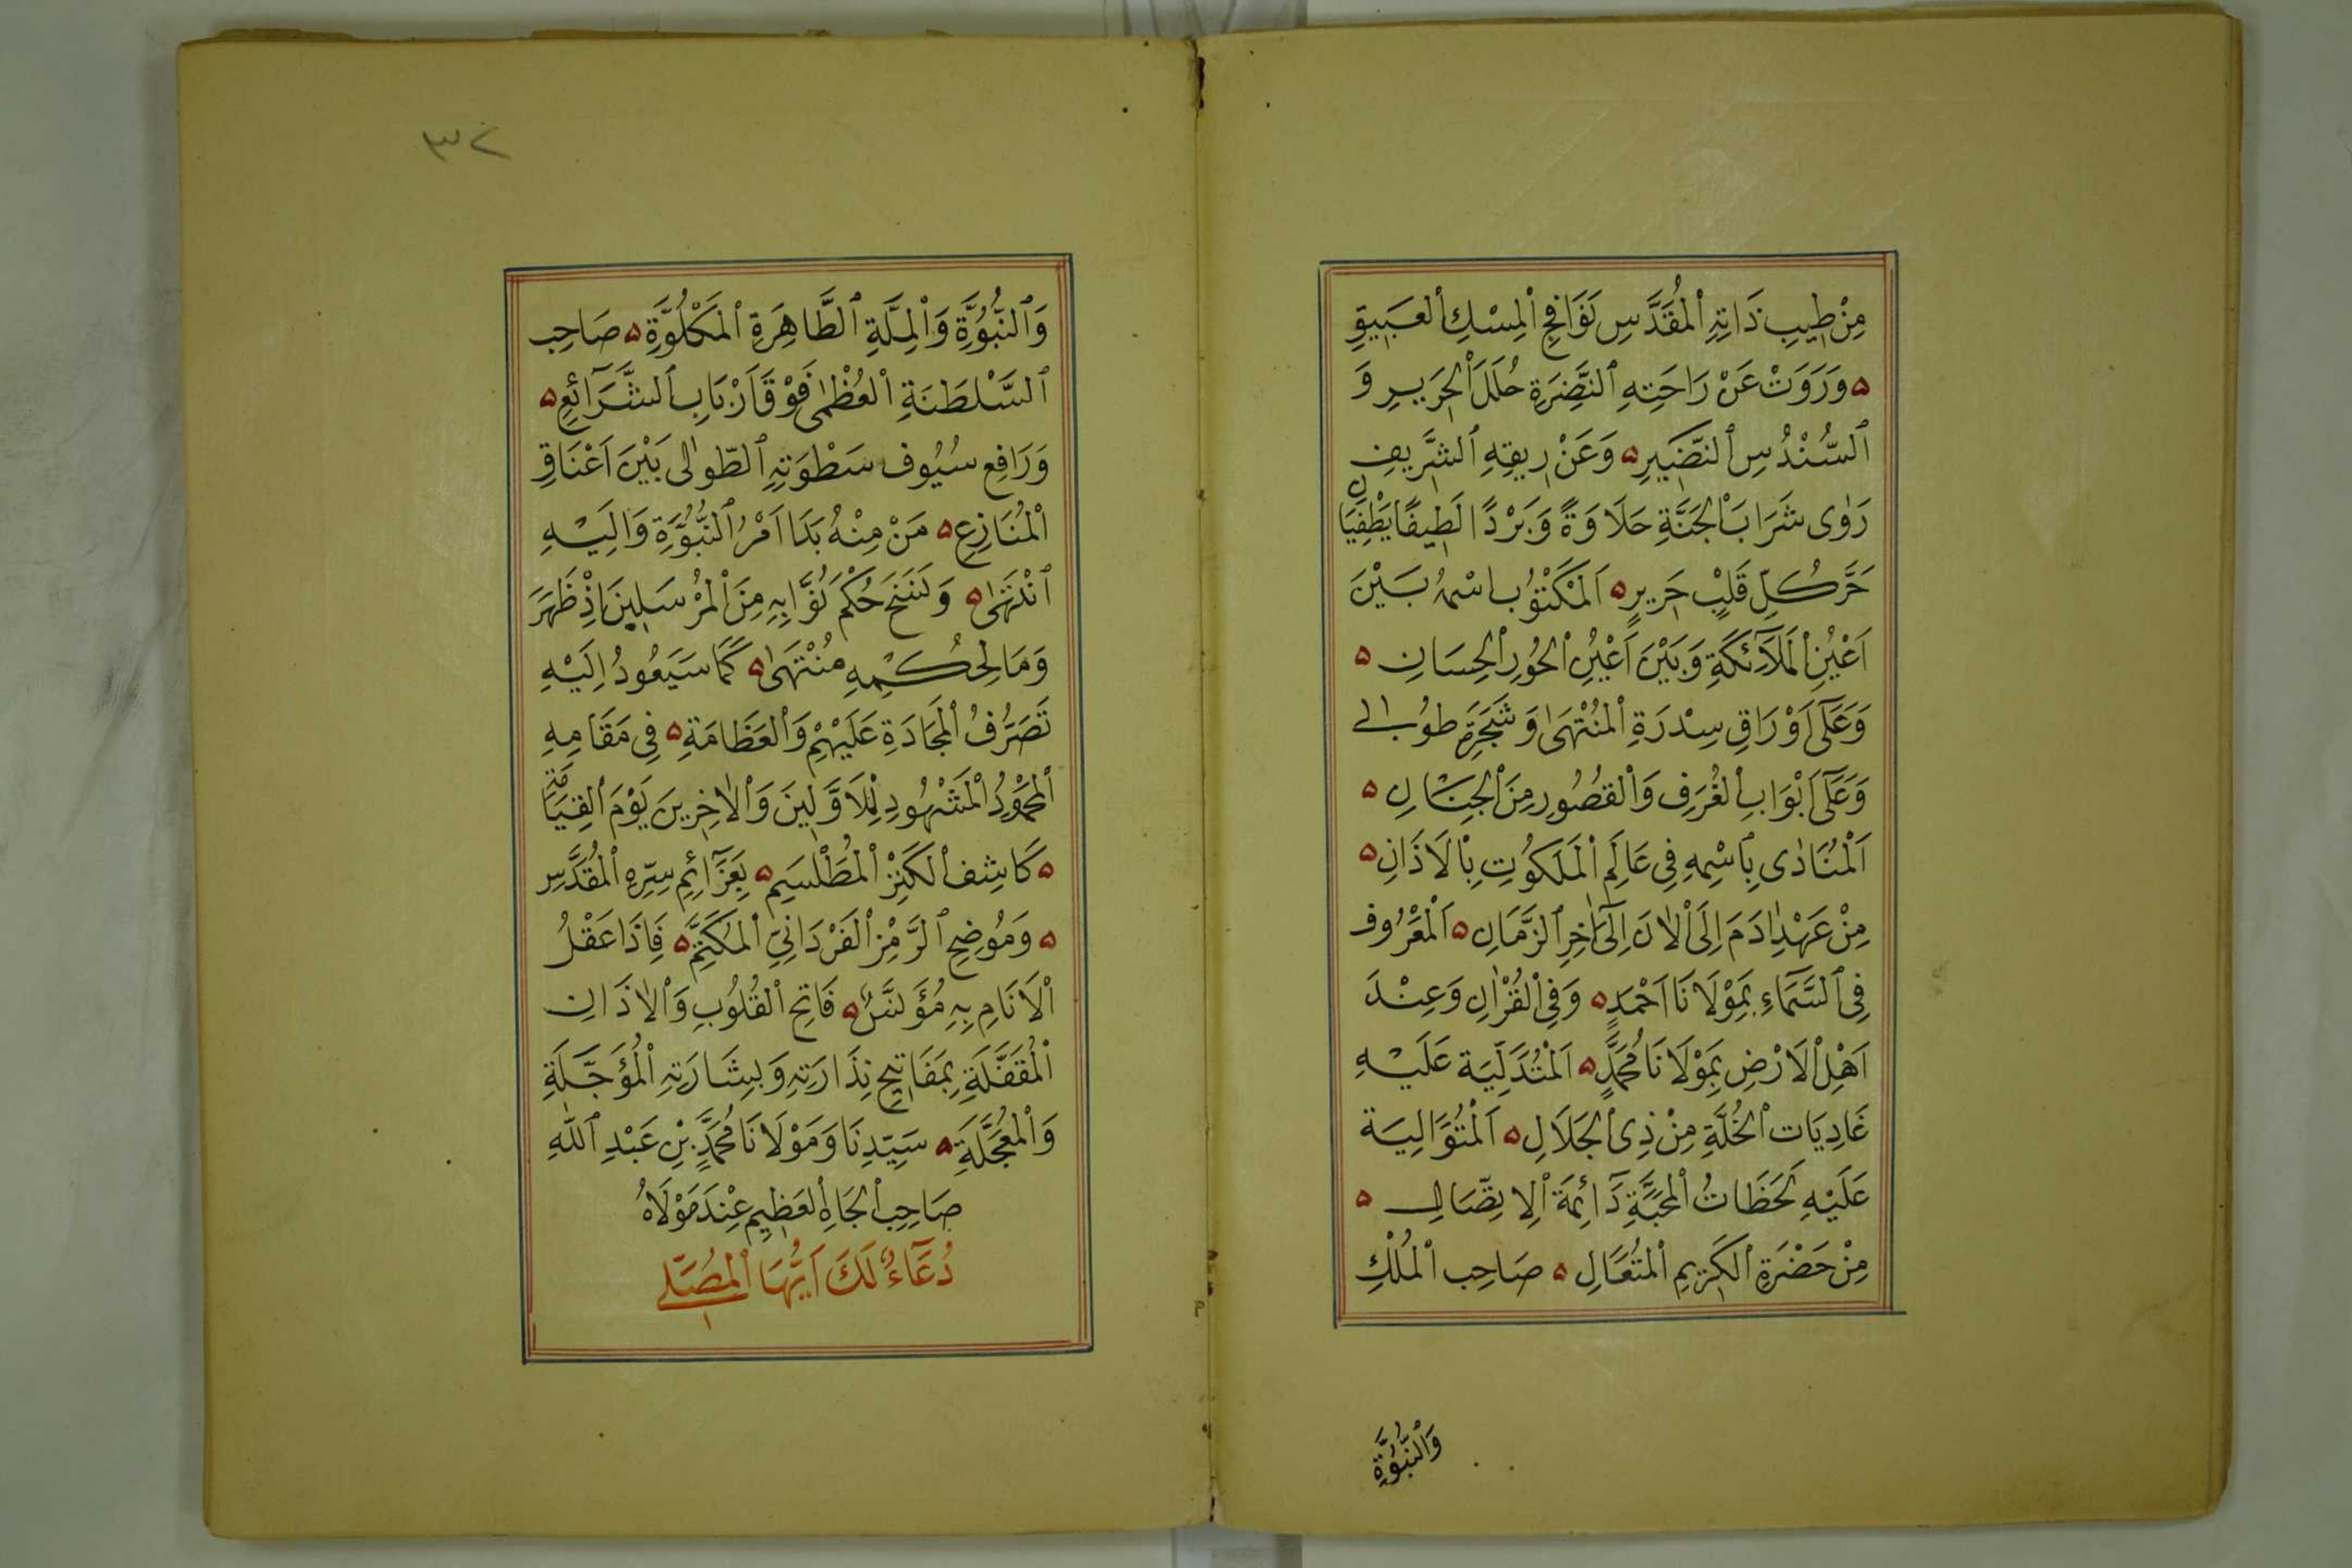 مِنْ طِيبِ ذَاتِهِ ٱلْمُقَدَّسِ نَوَافِحِ ٱلْمِسْكِ ٱلْعَبِيقِ
۵ وَرَوَتْ عَنْ رَاحَتِهِ ٱلنَّضِرَةِ حُلَلَ ٱلْحَرِيرِ وَ
ٱلسُّنْدُسِ ٱلنَّضِيرِ ۵ وَعَنْ رِيقِهِ ٱلشَّرِيفِ
رَوٰى شَرَابَ ٱلْجَنَّةِ حَلَاوَةً وَبَرْدًا لَطِيفًا يَطْفِيَانِ
حَرَّ كُلِّ قَلْبٍ حَرِيرٍ ۵ اَلْمَكْتُوبِ اسْمُهُ بَيْنَ
اَعْيُنِ ٱلْمَلَآئِكَةِ وَبَيْنَ اَعْيُنِ ٱلْحُورِ ٱلْحِسَانِ ۵
وَعَلَى اَوْرَاقِ سِدْرَةِ ٱلْمُنْتَهٰى وَشَجَرَةِ طُوبٰى
وَعَلَى اَبْوَابِ ٱلْغُرَفِ وَٱلْقُصُورِ مِنَ ٱلْجِنَانِ ۵
اَلْمُنَادٰى بِٱسْمِهِ فِى عَالَمِ ٱلْمَلَكُوتِ بِٱلْاَذَانِ ۵
مِنْ عَهْدِ اٰدَمَ اِلَى ٱلْاٰنَ اِلَىٰ اٰخِرِ ٱلزَّمَانِ ۵ اَلْمَعْرُوفِ
فِى ٱلسَّمَاءِ بِمَوْلَانَا اَحْمَدٍ ۵ وَفِى ٱلْقُرْاٰنِ وَعِنْدَ
اَهْلِ ٱلْاَرْضِ بِمَوْلَانَا مُحَمَّدٍ ۵ اَلْمُتَدَلِّيَةِ عَلَيْهِ
غَادِيَاتِ ٱلْخُلَّةِ مِنْ ذِى ٱلْجَلَالِ ۵ اَلْمُتَوَالِيَةِ
عَلَيْهِ لَحَظَاتُ ٱلْمَحَبَّةِ دَائِمَةَ ٱلِاتِّصَالِ ۵
مِنْ حَضْرَةِ ٱلْكَرِيمِ ٱلْمُتَعَالِ ۵ صَاحِبِ ٱلْمُلْكِ
وَٱلنُّبُوَّةِ
٣٢
وَٱلنُّبُوَّةِ وَٱلْمِلَّةِ ٱلطَّاهِرَةِ ٱلْمَكْلُوَّةِ ۵ صَاحِبِ
ٱلسَّلْطَنَةِ ٱلْعُظْمٰى فَوْقَ اَرْبَابِ ٱلشَّرَآئِعِ ۵
وَرَافِعِ سُيُوفِ سَطْوَتِهِ ٱلطُّوالٰى بَيْنَ اَعْنَاقِ
ٱلْمُنَازِعِ ۵ مَنْ مِنْهُ بَدَا اَمْرُ ٱلنُّبُوَّةِ وَاِلَيْهِ
ٱنْتَهٰى ۵ وَنَسَخَ حُكْمَ نُوَّابِهِ مِنَ ٱلْمُرْسَلِينَ اِذْ ظَهَرَ
وَمَا لِحُكْمِهِ مُنْتَهٰى ۵ كَمَا سَيَعُودُ اِلَيْهِ
تَصَرُّفُ ٱلْمَجَادَةِ عَلَيْهِمْ وَٱلْعَظَامَةِ ۵ فِى مَقَامِهِ
ٱلْمَحْمُودِ ٱلْمَشْهُودِ لِلْاَوَّلِينَ وَٱلْاٰخِرِينَ يَوْمَ ٱلْقِيَامَةِ
۵ كَاشِفِ ٱلْكَنْزِ ٱلْمُطَلْسَمِ ۵ بِعَزَآئِمِ سِرِّهِ ٱلْمُقَدَّسِ
۵ وَمُوضِحِ ٱلرَّمْزِ ٱلْفَرْدَانِيِّ ٱلْمُكَتَّمِ ۵ فَاِذَا عَقْلُ
ٱلْاَنَامِ بِهِ مُؤَنَّسٌ ۵ فَاتِحِ ٱلْقُلُوبِ وَٱلْاٰذَانِ
ٱلْمُقَفَّلَةِ بِمَفَاتِيحِ نِذَارَتِهِ وَبِشَارَتِهِ ٱلْمُؤَجَّلَةِ
وَٱلْمُعَجَّلَةِ ۵ سَيِّدِنَا وَمَوْلَانَا مُحَمَّدِ بْنِ عَبْدِ ٱللّٰهِ
صَاحِبِ ٱلْجَاهِ ٱلْعَظِيمِ عِنْدَ مَوْلَاهُ
دُعَآءٌ لَكَ اَيُّهَا ٱلْمُصَلِّى